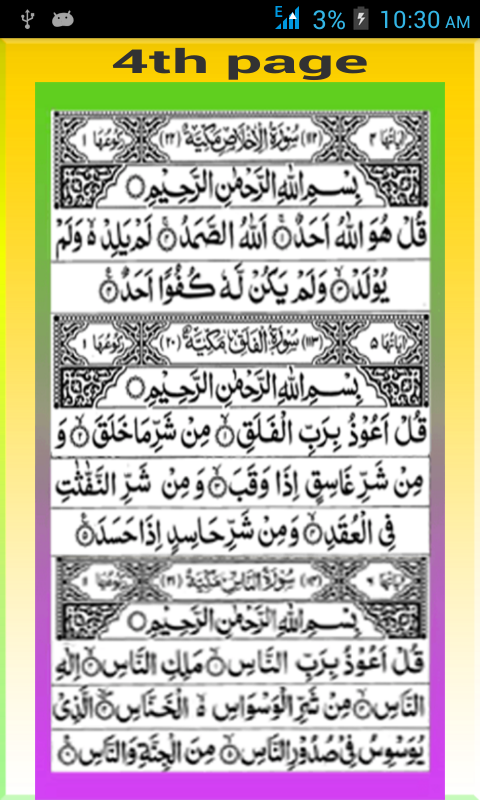 E 3% 10:30 AM
4th page
اٰیَاتُهَا ۴ (۱۱۲) سُوْرَةُ الْاِخْلَاصِ مَكِّيَّةٌ (۲۲) رُكُوْعُهَا ۱
بِسْمِ اللّٰهِ الرَّحْمٰنِ الرَّحِيْمِ
قُلْ هُوَ اللّٰهُ اَحَدٌ ۱ اَللّٰهُ الصَّمَدُ ۲ لَمْ يَلِدْ ۙ وَلَمْ
يُوْلَدْ ۳ وَلَمْ يَكُنْ لَّهٗ كُفُوًا اَحَدٌ ۴
اٰیَاتُهَا ۵ (۱۱۳) سُوْرَةُ الْفَلَقِ مَكِّيَّةٌ (۲۰) رُكُوْعُهَا ۱
بِسْمِ اللّٰهِ الرَّحْمٰنِ الرَّحِيْمِ
قُلْ اَعُوْذُ بِرَبِّ الْفَلَقِ ۱ مِنْ شَرِّ مَا خَلَقَ ۲ وَ
مِنْ شَرِّ غَاسِقٍ اِذَا وَقَبَ ۳ وَمِنْ شَرِّ النَّفّٰثٰتِ
فِي الْعُقَدِ ۴ وَمِنْ شَرِّ حَاسِدٍ اِذَا حَسَدَ ۵
اٰیَاتُهَا ۶ سُوْرَةُ النَّاسِ مَكِّيَّةٌ (۲۱) رُكُوْعُهَا ۱
بِسْمِ اللّٰهِ الرَّحْمٰنِ الرَّحِيْمِ
قُلْ اَعُوْذُ بِرَبِّ النَّاسِ ۱ مَلِكِ النَّاسِ ۲ اِلٰهِ
النَّاسِ ۳ مِنْ شَرِّ الْوَسْوَاسِ ۙ الْخَنَّاسِ ۴ الَّذِيْ
يُوَسْوِسُ فِيْ صُدُوْرِ النَّاسِ ۵ مِنَ الْجِنَّةِ وَالنَّاسِ ۶